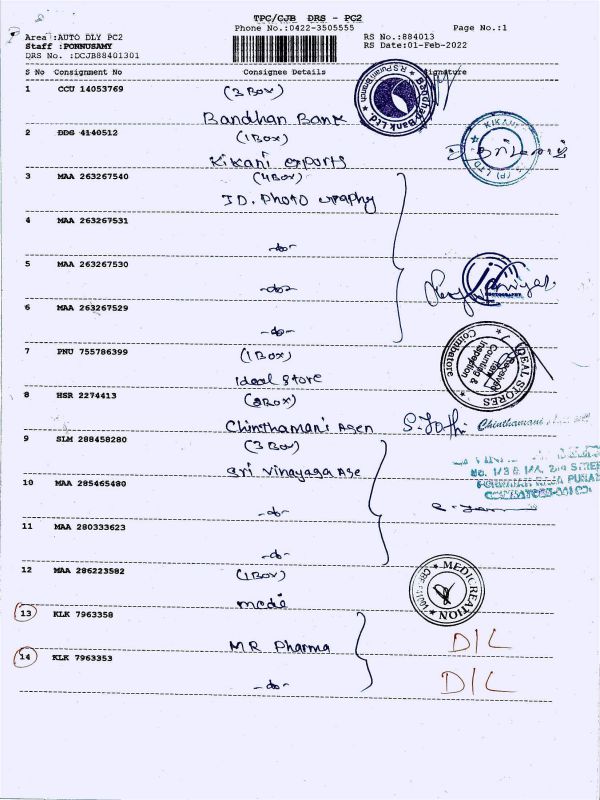 TPC/CJB DRS - PC2
Phone No.:0422-3505555
Page No.:1
Area :AUTO DLY PC2
RS No.:884013
Staff :PONNUSAMY
RS Date:01-Feb-2022
DRS No. :DCJB88401301
S No Consignment No Consignee Details Signature
1 CCU 14053769 (3 Box)
Bandhan Bank
Bandhan Bank Ltd.
R S Puram Branch
2 DDG 4140512 (1 Box)
Kikani exports
KIKANI
(P) LTD
3 MAA 263267540 (4 Box)
JD. Photo graphy
4 MAA 263267531
-do-
5 MAA 263267530
-do-
jd
6 MAA 263267529
-do-
7 PNU 755786399 (1 Box)
Ideal Store
IDEAL STORES
Coimbatore
Received
Counting &
Inspection
8 HSR 2274413 (2 Box)
Chinthamani Agen
Chinthamani
9 SLM 288458280 (3 Box)
Sri Vinayaga Age
10 MAA 285465480
-do-
11 MAA 280333623
-do-
12 MAA 286223582 (1 Box)
medi
MEDICREATION
13 KLK 7963358
MR Pharma
D/L
14 KLK 7963353
-do-
D/L